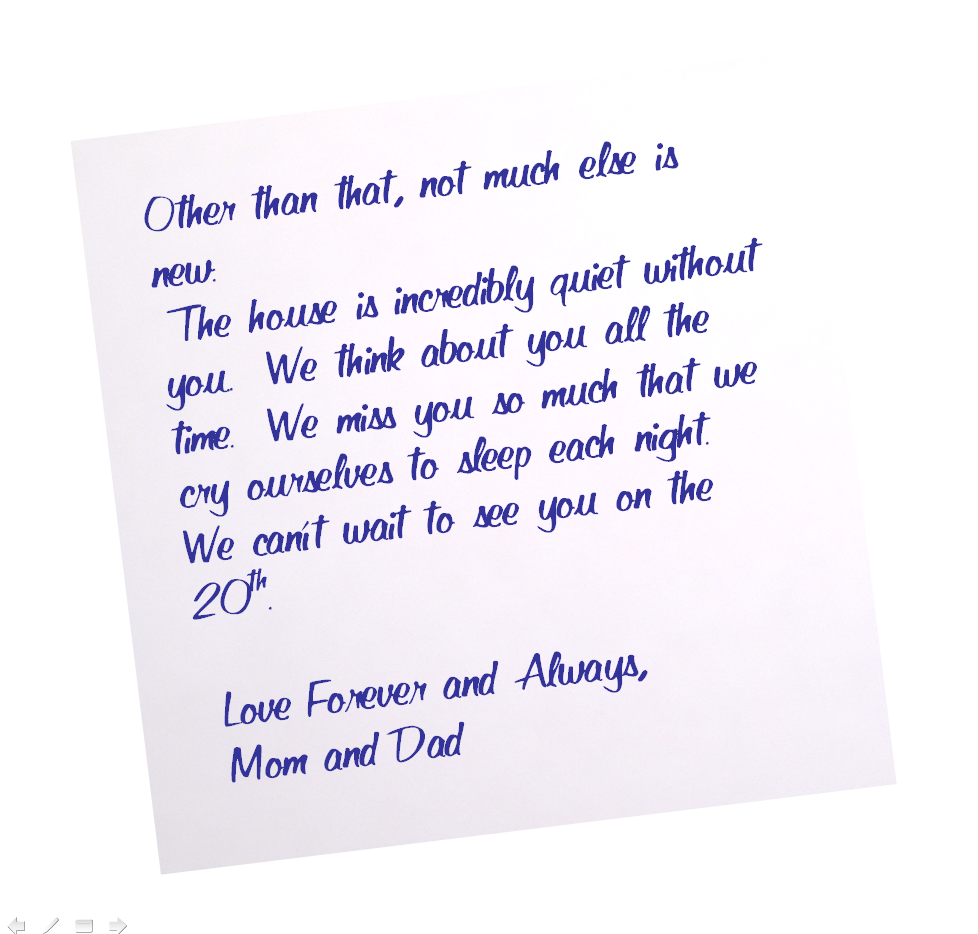 Other than that, not much else is
new.
The house is incredibly quiet without
you. We think about you all the
time. We miss you so much that we
cry ourselves to sleep each night.
We can't wait to see you on the
20th.
Love Forever and Always,
Mom and Dad